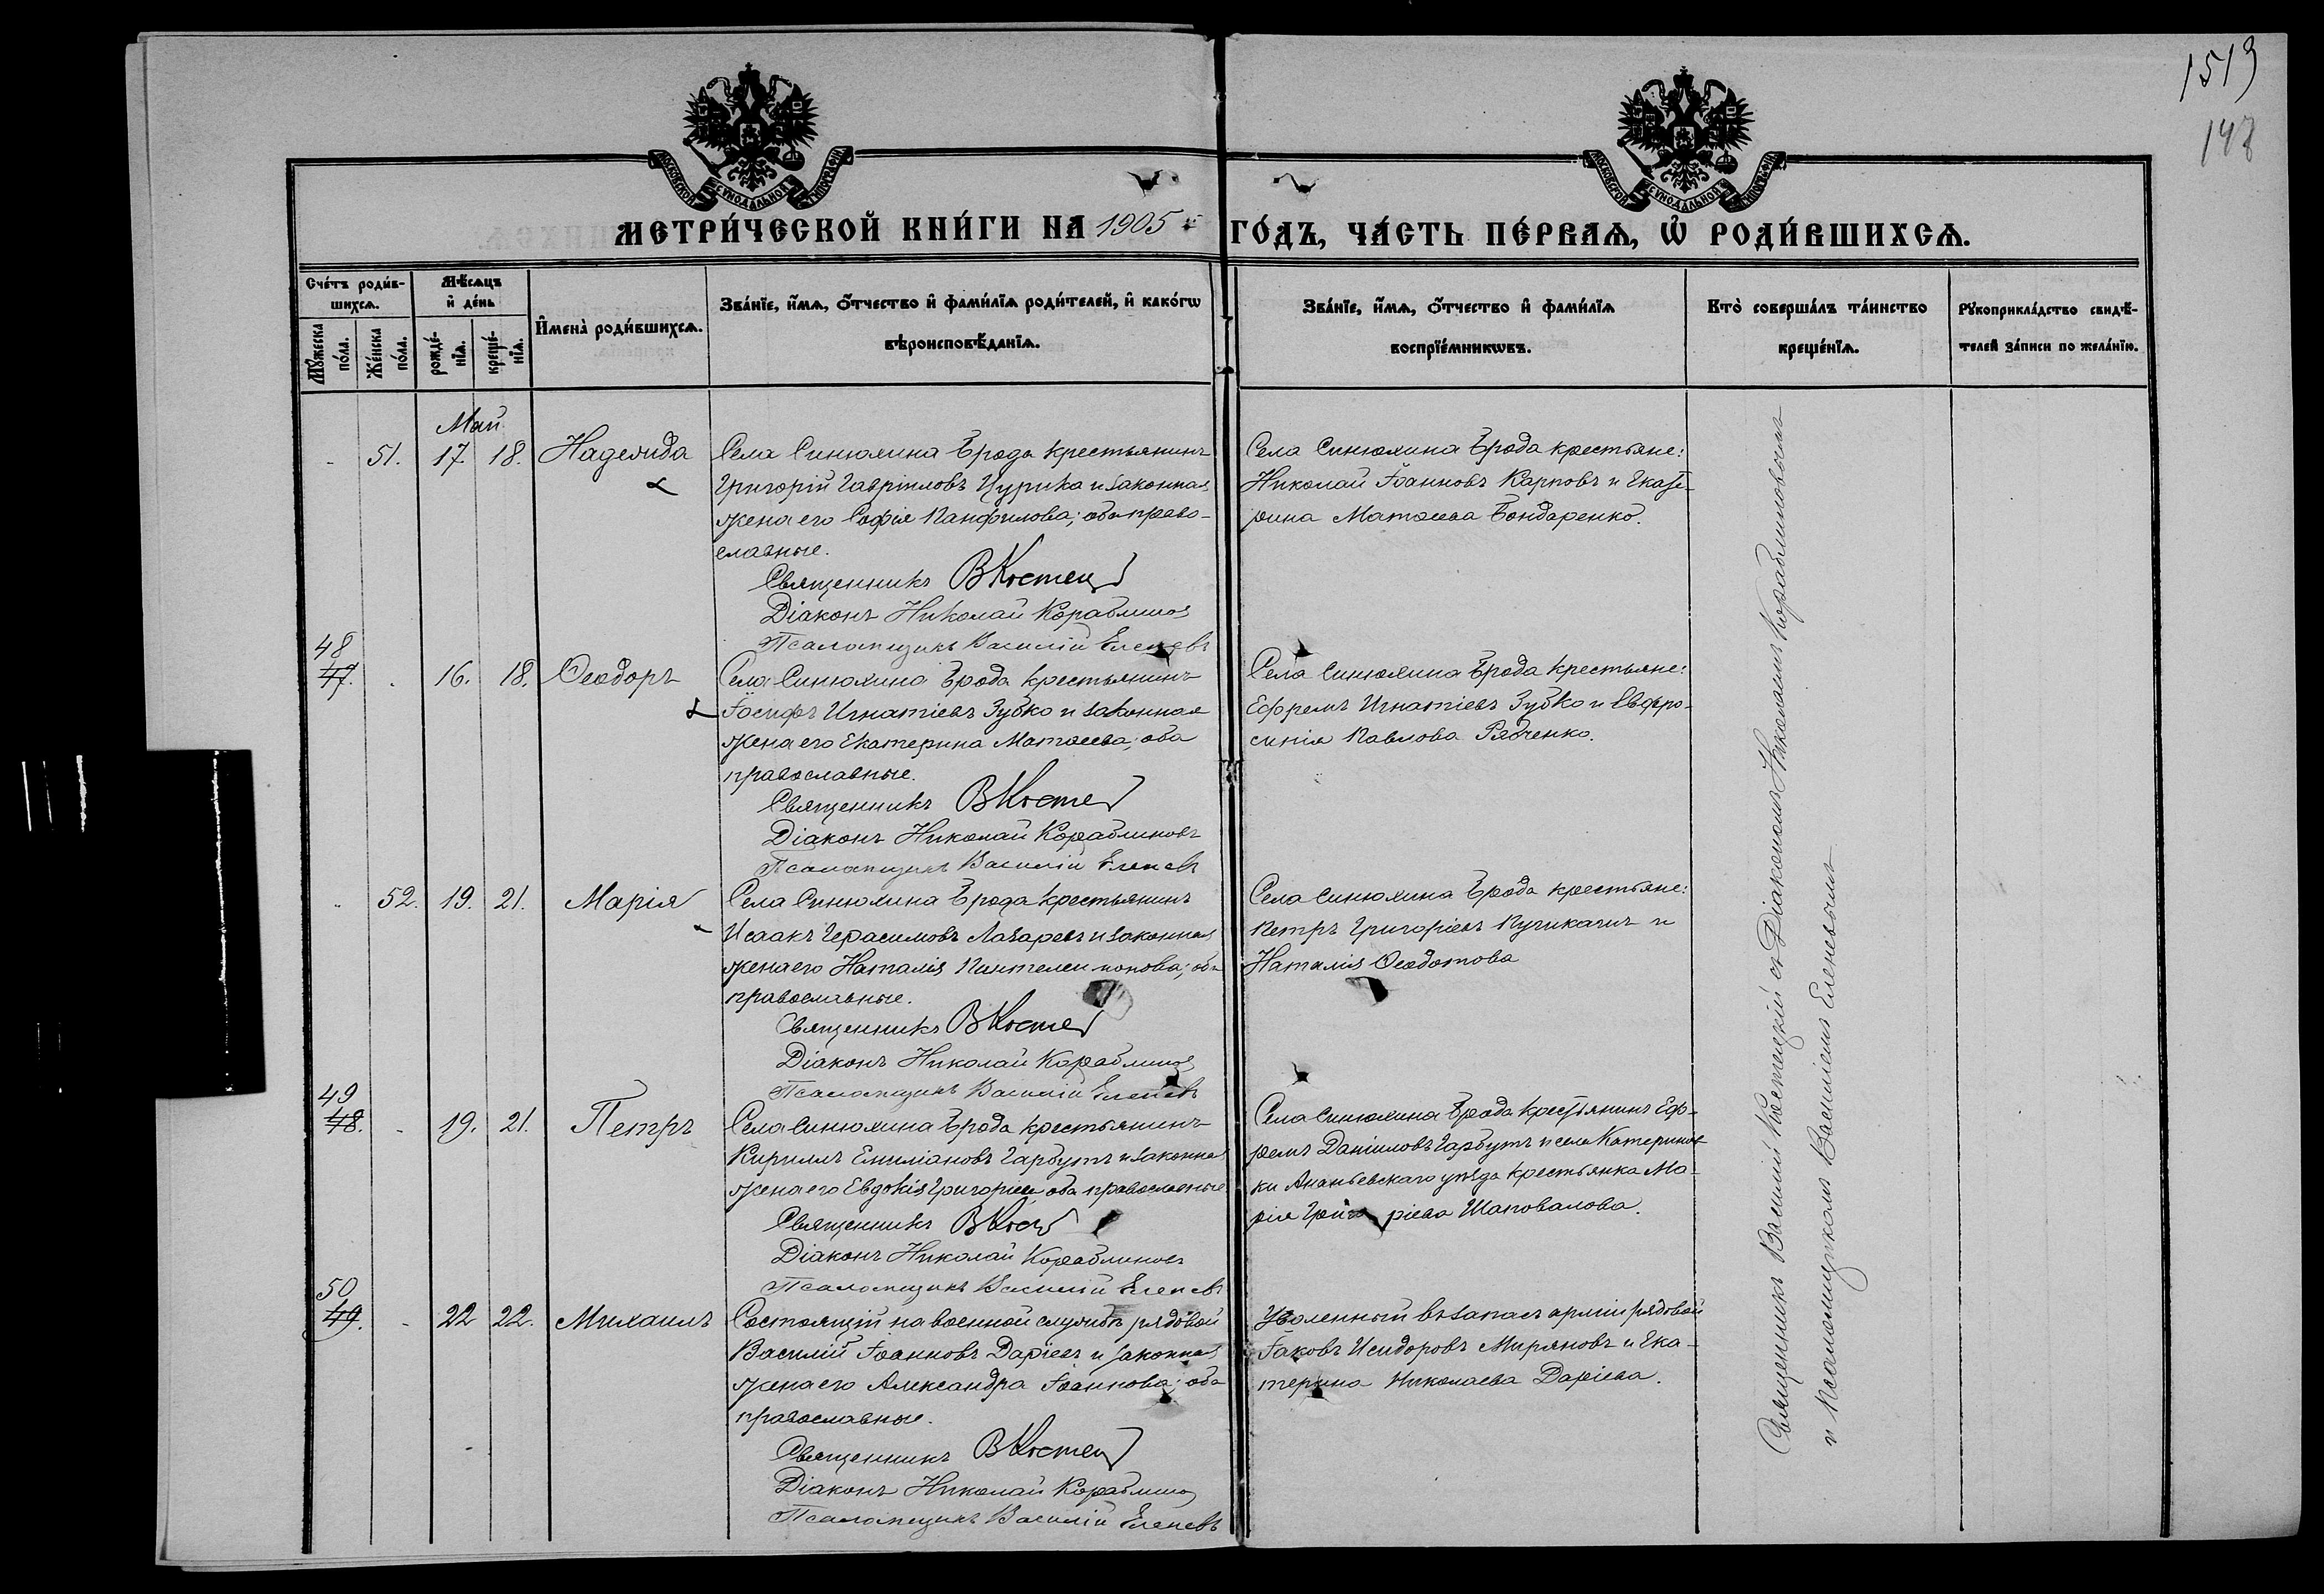 1519
148
МОСКОВСКОЙ СУНОДАЛЬНОЙ ТИПОГРАФІИ
МОСКОВСКОЙ СУНОДАЛЬНОЙ ТИПОГРАФІИ
МЕТРИ́ЧЕСКОЙ КНИ́ГИ НА 1905 й ГО́ДЪ, ЧА́СТЬ ПЕ́РВАѦ, Ѡ҆ РОДИ́ВШИХСѦ.
Сче́тъ роди́в-
шихсѧ.
Мꙋ́жеска по́ла.
Же́нска по́ла.
Мѣ́сѧцъ
и҆ де́нь
рожде́-
нїѧ.
креще́-
нїѧ.
И҆мена̀ роди́вшихсѧ.
Зва́нїе, и҆́мѧ, ѻ҆́тчество и҆ фами́лїѧ роди́телей, и҆ како́гѡ
вѣроисповѣ́данїѧ.
Зва́нїе, и҆́мѧ, ѻ҆́тчество и҆ фами́лїѧ
воспрїе́мникѡвъ.
Кто̀ соверша́лъ та́инство
креще́нїѧ.
Рꙋкоприкла́дство свидѣ́-
телей за́писи по жела́нїю.
Май
- 51. 17. 18. Надежда
Села Синюхина Брода крестьянинъ
Григорій Гавріиловъ Цурика и законная
жена его Софія Панфилова; оба право-
славные.
Священникъ ВКостец
Діаконъ Николай Кораблинов
Псаломщикъ Василій Еленевъ
Села Синюхина Брода крестьяне:
Николай Іоанновъ Карповъ и Екате-
рина Матѳеева Бондаренко.
48
47. - 16. 18. Ѳеодоръ
Села Синюхина Брода крестьянинъ
Іосифъ Игнатіевъ Зубко и законная
жена его Екатерина Матѳеева; оба
православные.
Священникъ ВКосте
Діаконъ Николай Кораблиновъ
Псаломщикъ Василій Еленевъ
Села Синюхина Брода крестьяне:
Ефремъ Игнатіевъ Зубко и Евфро-
синія Павлова Рябченко.
- 52. 19. 21. Марія
Села Синюхина Брода крестьянинъ
Исаакъ Герасимовъ Лазаревъ и законная
жена его Наталія Пантелеимонова; оба
православные.
Священникъ ВКосте
Діаконъ Николай Кораблинов
Псаломщикъ Василій Еленевъ
Села Синюхина Брода крестьяне:
Петръ Григоріевъ и
Наталія Ѳеодотова
49
48. - 19. 21. Петръ
Села Синюхина Брода крестьянинъ
Кириллъ Емиліановъ Гарбузъ и законная
жена его Евдокія Григоріева, оба православные
Священникъ ВКост
Діаконъ Николай Кораблиновъ
Псаломщикъ Василій Еленевъ
Села Синюхина Брода крестьянинъ Еф-
ремъ Даніиловъ Гарбузъ и села Катеринов-
ки Ананьевскаго уѣзда крестьянка Ма-
рія Григоріева Шаповалова.
50
49. - 22 22. Михаилъ
Состоящій на военной службѣ рядовой
Василій Іоанновъ Даріевъ и законная
жена его Александра Іоаннова; оба
православные.
Священникъ ВКостец
Діаконъ Николай Кораблинов
Псаломщикъ Василій Еленевъ
Уволенный въ запасъ арміи рядовой
Іаковъ Исидоровъ Миряновъ и Ека-
терина Николаева Даріева.
Священникъ Василій Костецкій съ Діакономъ Николаемъ Кораблиновымъ
и Псаломщикомъ Василіемъ Еленевымъ